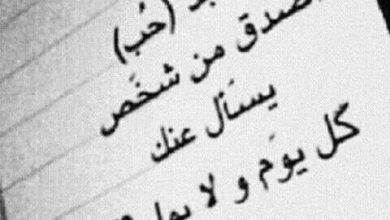 (حُب)
أصدق من شخَص
يسَأل عنك
كُل يوَم و لا